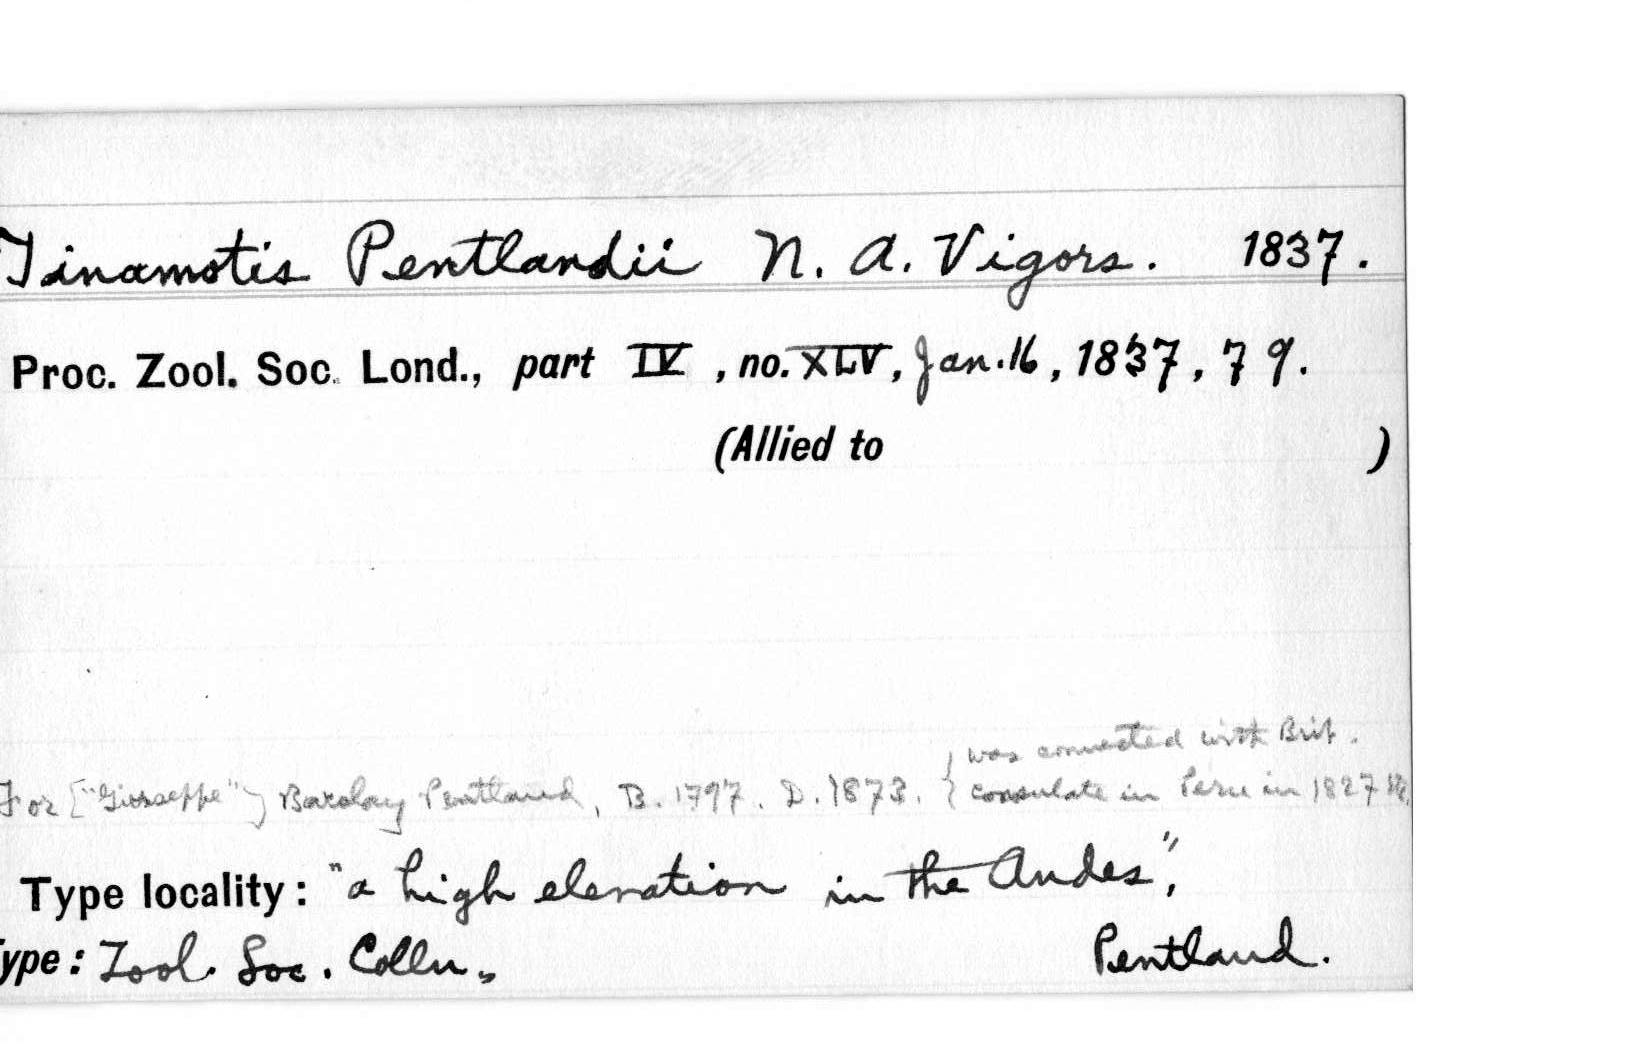 Tinamotis Pentlandii N. A. Vigors. 1837.
Proc. Zool. Soc. Lond., part IV, no. XLV, Jan. 16, 1837, 79.
(Allied to )
was connected with Brit.
For ["Giuseppe"] Barclay Pentland, B. 1797. D. 1873. { consulate in Peru in 1827
Type locality: "a high elevation in the Andes",
ype: Zool. Soc. Colln. Pentland.